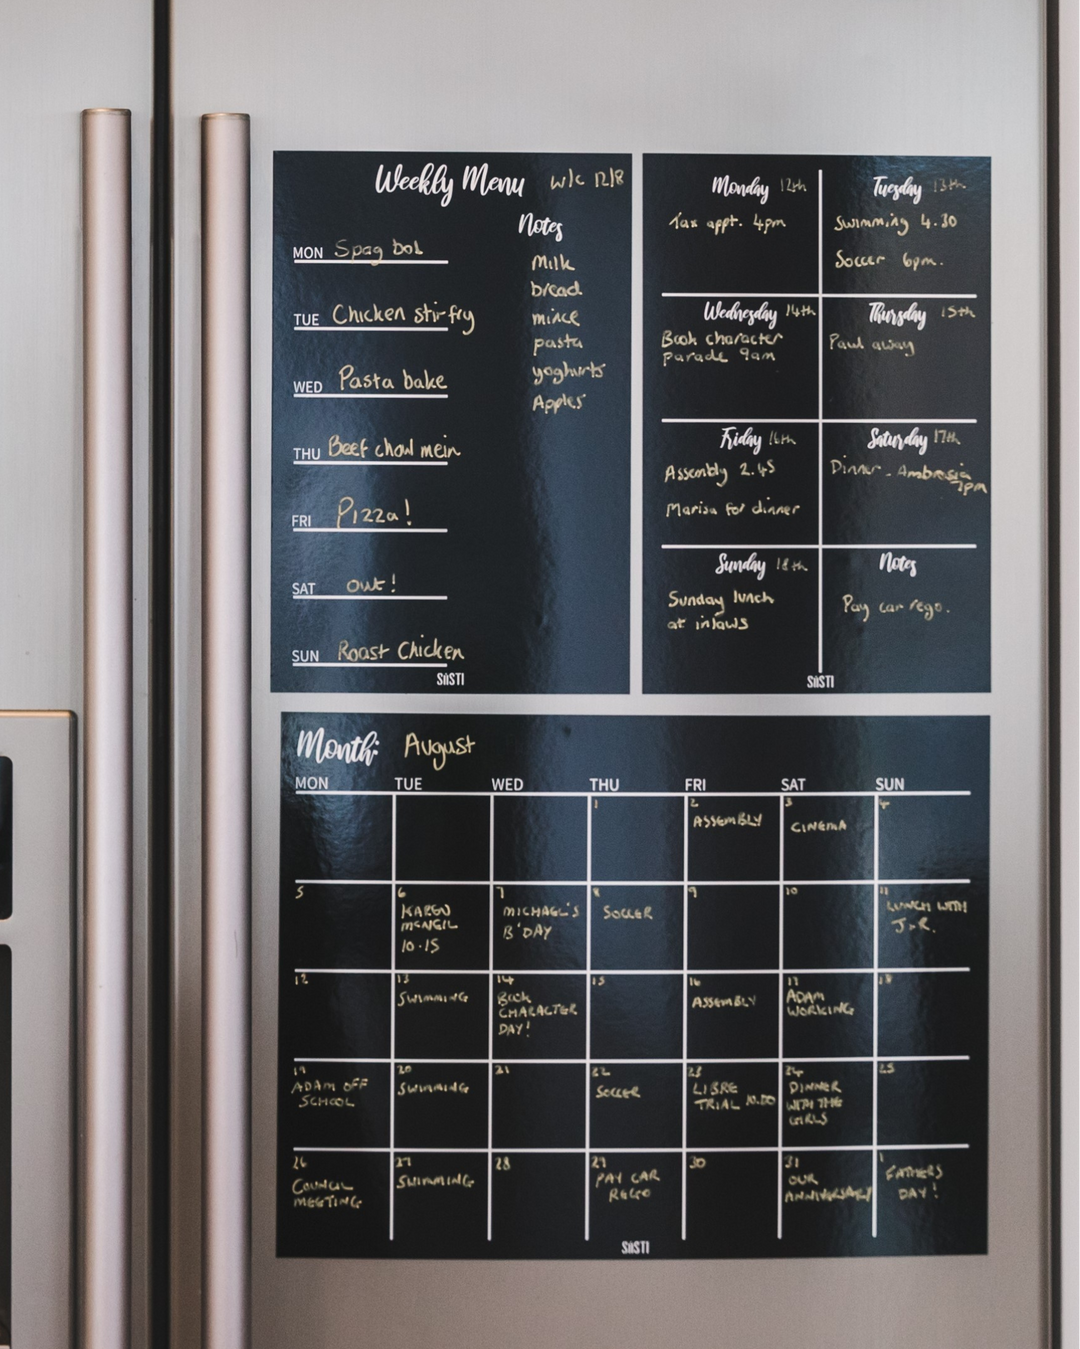 Weekly Menu w/c 12/8
Notes
MON Spag bol
TUE Chicken stir-fry
WED Pasta bake
THU Beef chow mein
FRI Pizza!
SAT out!
SUN Roast Chicken
Milk
bread
mince
pasta
yoghurts
Apples
SiiSTI
Monday 12th
Tax appt. 4pm
Tuesday 13th
Swimming 4.30
Soccer 6pm.
Wednesday 14th
Book character
parade 9am
Thursday 15th
Paul away
Friday 16th
Assembly 2.45
Marisa for dinner
Saturday 17th
Dinner - Ambrosia
7pm
Sunday 18th
Sunday lunch
at inlaws
Notes
Pay car rego.
SiiSTI
Month: August
MON TUE WED THU FRI SAT SUN
1
2
ASSEMBLY
3
CINEMA
4
5
6
KAREN
MCNEIL
10.15
7
MICHAEL'S
B'DAY
8
SOCCER
9
10
11
LUNCH WITH
J+R.
12
13
SWIMMING
14
BOOK
CHARACTER
DAY!
15
16
ASSEMBLY
17
ADAM
WORKING
18
19
ADAM OFF
SCHOOL
20
SWIMMING
21
22
SOCCER
23
LIBRE
TRIAL 10.00
24
DINNER
WITH THE
GIRLS
25
26
COUNCIL
MEETING
27
SWIMMING
28
29
PAY CAR
REGO
30
31
OUR
ANNIVERSARY
1
FATHERS
DAY!
SiiSTI